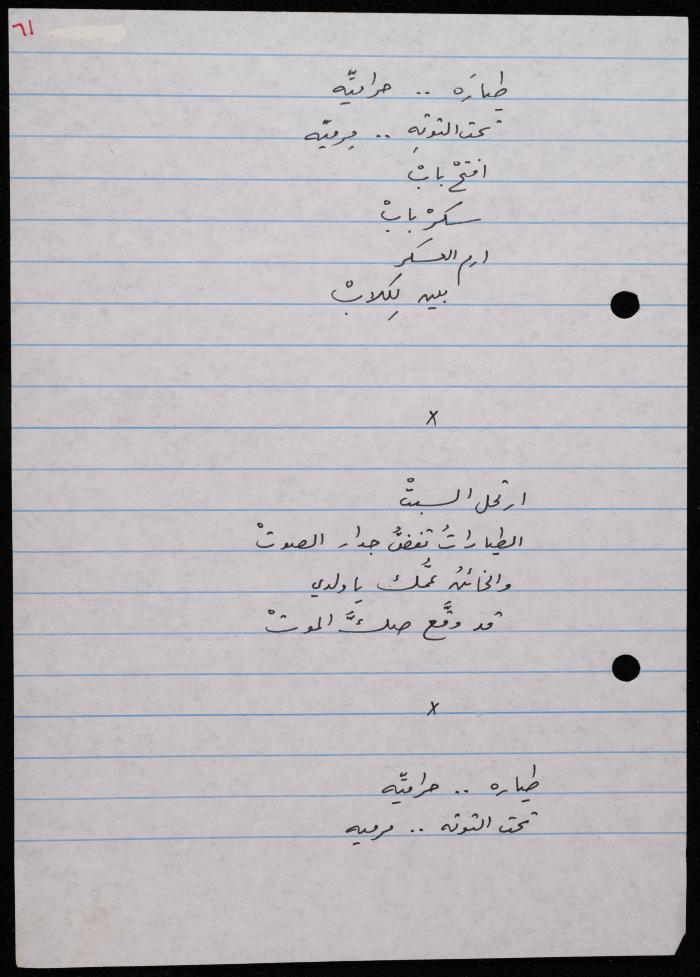 ٦١
طيارَه .. حراميّه
تحت التوتهِ .. مِرميّه
افتحْ بابْ
سكرْ بابْ
ارم العسكر
بين لِكلابْ
x
ارتحل السبتْ
الطياراتُ تفضُّ جدار الصوتْ
والخائنُ عمُّك يا ولدي
قد وقَّع صكَّ الموتْ
x
طياره .. حراميّه
تحت التوته .. مرميه